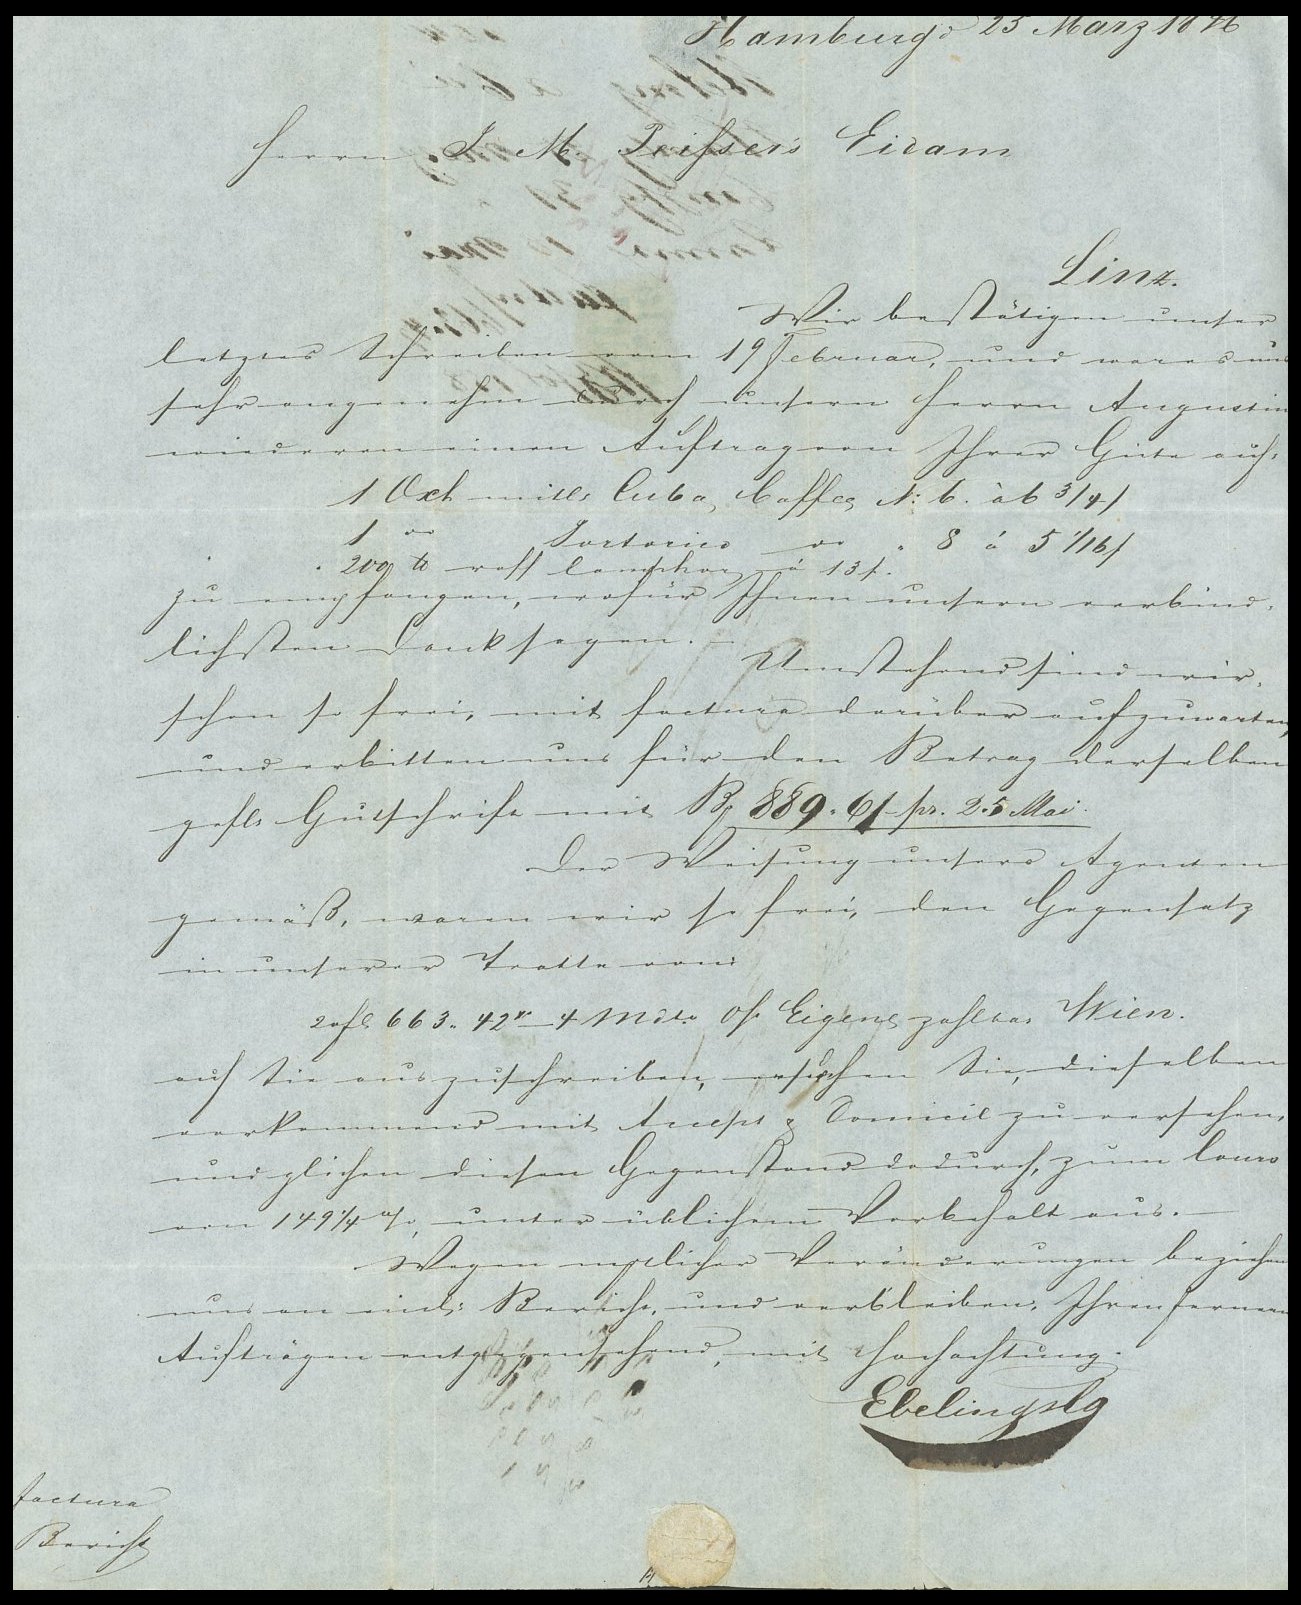 Hamburg d 25 März 1846
Herrn J. M. Eidam
Linz.
Wir bestätigen unser
letztes Schreiben vom 19 Februar, und ware es uns
sehr angenehm durch unsern Herrn Augustin
wiederum einen Auftrag von Ihrer Güte auf:
1 Oxh mittl. Cuba Caffee N: 6. à 6 3/4 f
1 do Portorico do " 8 à 5 1/16 f
200 ℔ raff Campher à 13 f.
zu empfangen, wofür Ihnen unsern verbind-
lichsten Dank sagen. —
Umstehend sind wir
schon so frei, mit Factura darüber aufzuwarten,
und erbitten uns für den Betrag derselben
gefl. Gutschrift mit 889. 6 f pr. 25 Mai.
Der Weisung unsers Agenten
gemäß, waren wir so frei, den Gegensatz
in unserer Tratte von:
663. 42 x 4 Mdto O/ Eigene zahlbar Wien.
auf Sie auszuschreiben, ersuchen Sie, dieselben
vorkommend mit Accept & Domicil zu versehen,
und glichen diesen Gegenstand dadurch, zum Cours
von 149 1/4 %, unter üblichem Vorbehalt aus. —
Wegen Veränderungen beziehen
uns an einl: Bericht, und verbleiben, Ihren fernern
Aufträgen entgegensehend, mit Hochachtung.
Ebeling & Co
Factura
Bericht